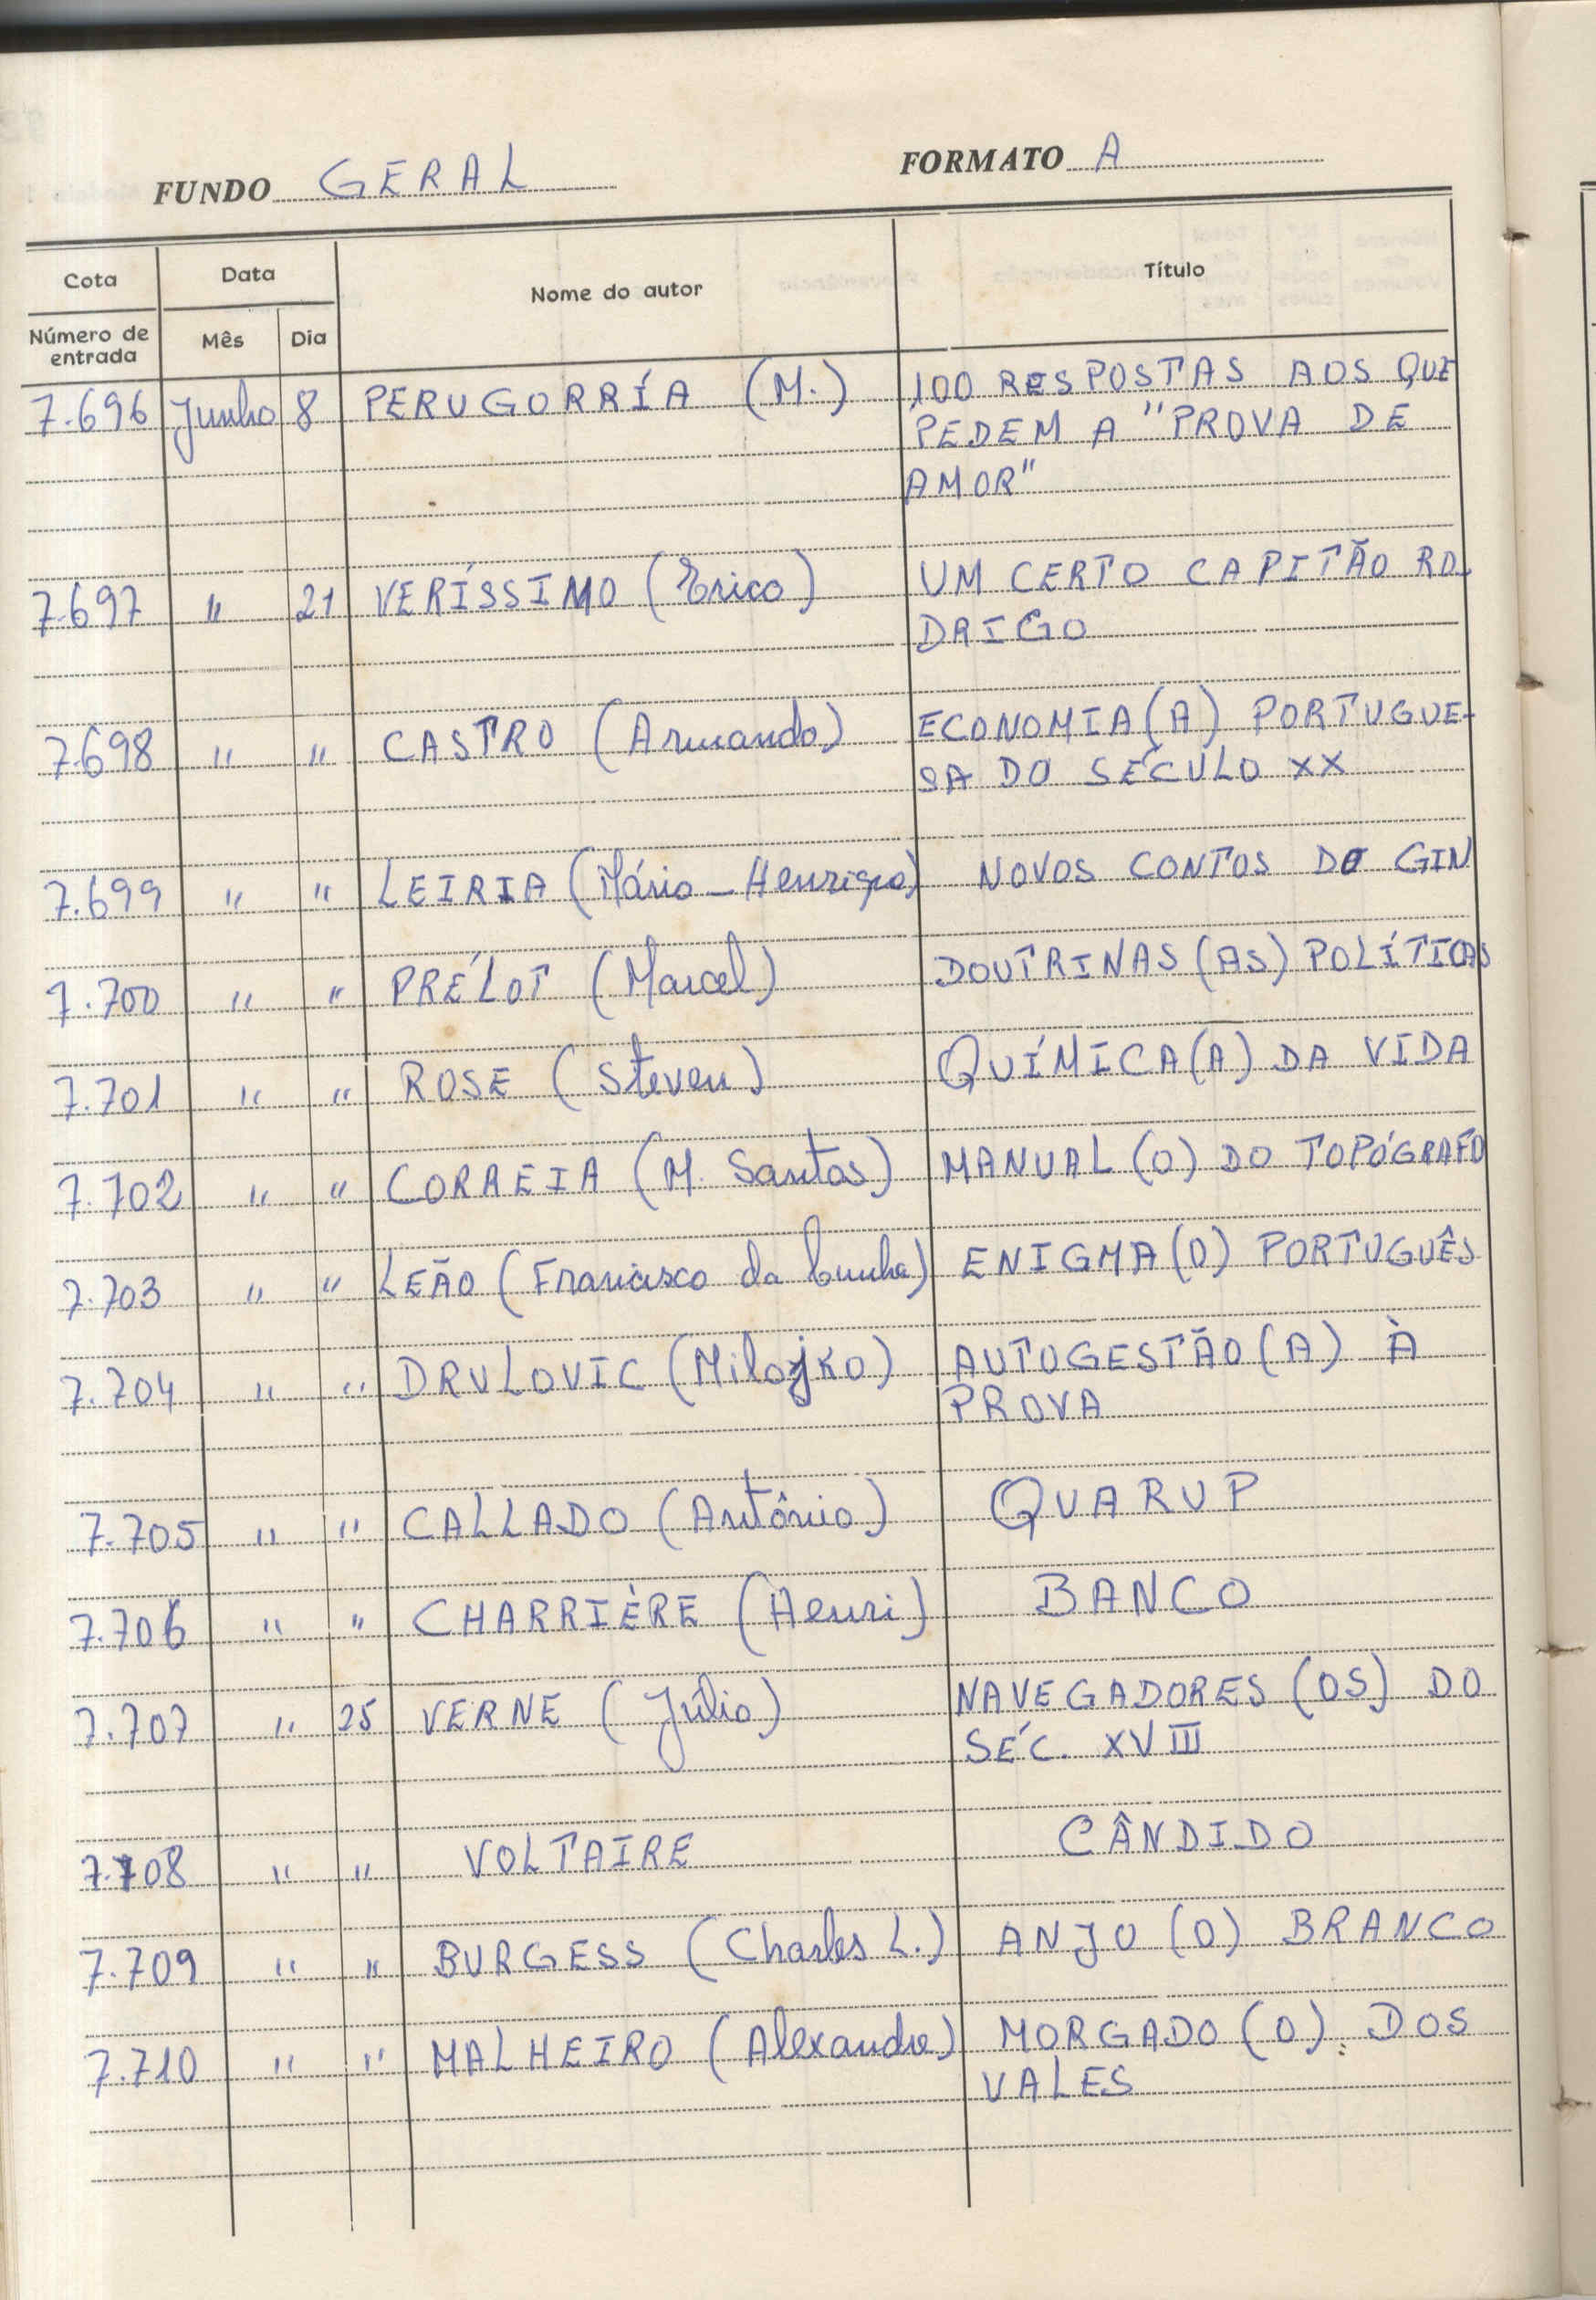 FUNDO GERAL FORMATO A
Cota Data Nome do autor Título
Número de entrada Mês Dia
7.696 Junho 8 PERUGORRÍA (M.) 100 RESPOSTAS AOS QUE
PEDEM A "PROVA DE
AMOR"
7.697 " 21 VERÍSSIMO (Erico) UM CERTO CAPITÃO RO-
DRIGO
7.698 " " CASTRO (Armando) ECONOMIA (A) PORTUGUE-
SA DO SÉCULO XX
7.699 " " LEIRIA (Mário-Henrique) NOVOS CONTOS DO GIN
7.700 " " PRÉLOT (Marcel) DOUTRINAS (AS) POLÍTICAS
7.701 " " ROSE (Steven) QUÍMICA (A) DA VIDA
7.702 " " CORREIA (M. Santos) MANUAL (O) DO TOPÓGRAFO
7.703 " " LEÃO (Francisco da Cunha) ENIGMA (O) PORTUGUÊS
7.704 " " DRULOVIC (Milojko) AUTOGESTÃO (A) À
PROVA
7.705 " " CALLADO (Antônio) QUARUP
7.706 " " CHARRIÈRE (Henri) BANCO
7.707 " 25 VERNE (Júlio) NAVEGADORES (OS) DO
SÉC. XVIII
7.708 " " VOLTAIRE CÂNDIDO
7.709 " " BURGESS (Charles L.) ANJO (O) BRANCO
7.710 " " MALHEIRO (Alexandre) MORGADO (O) DOS
VALES